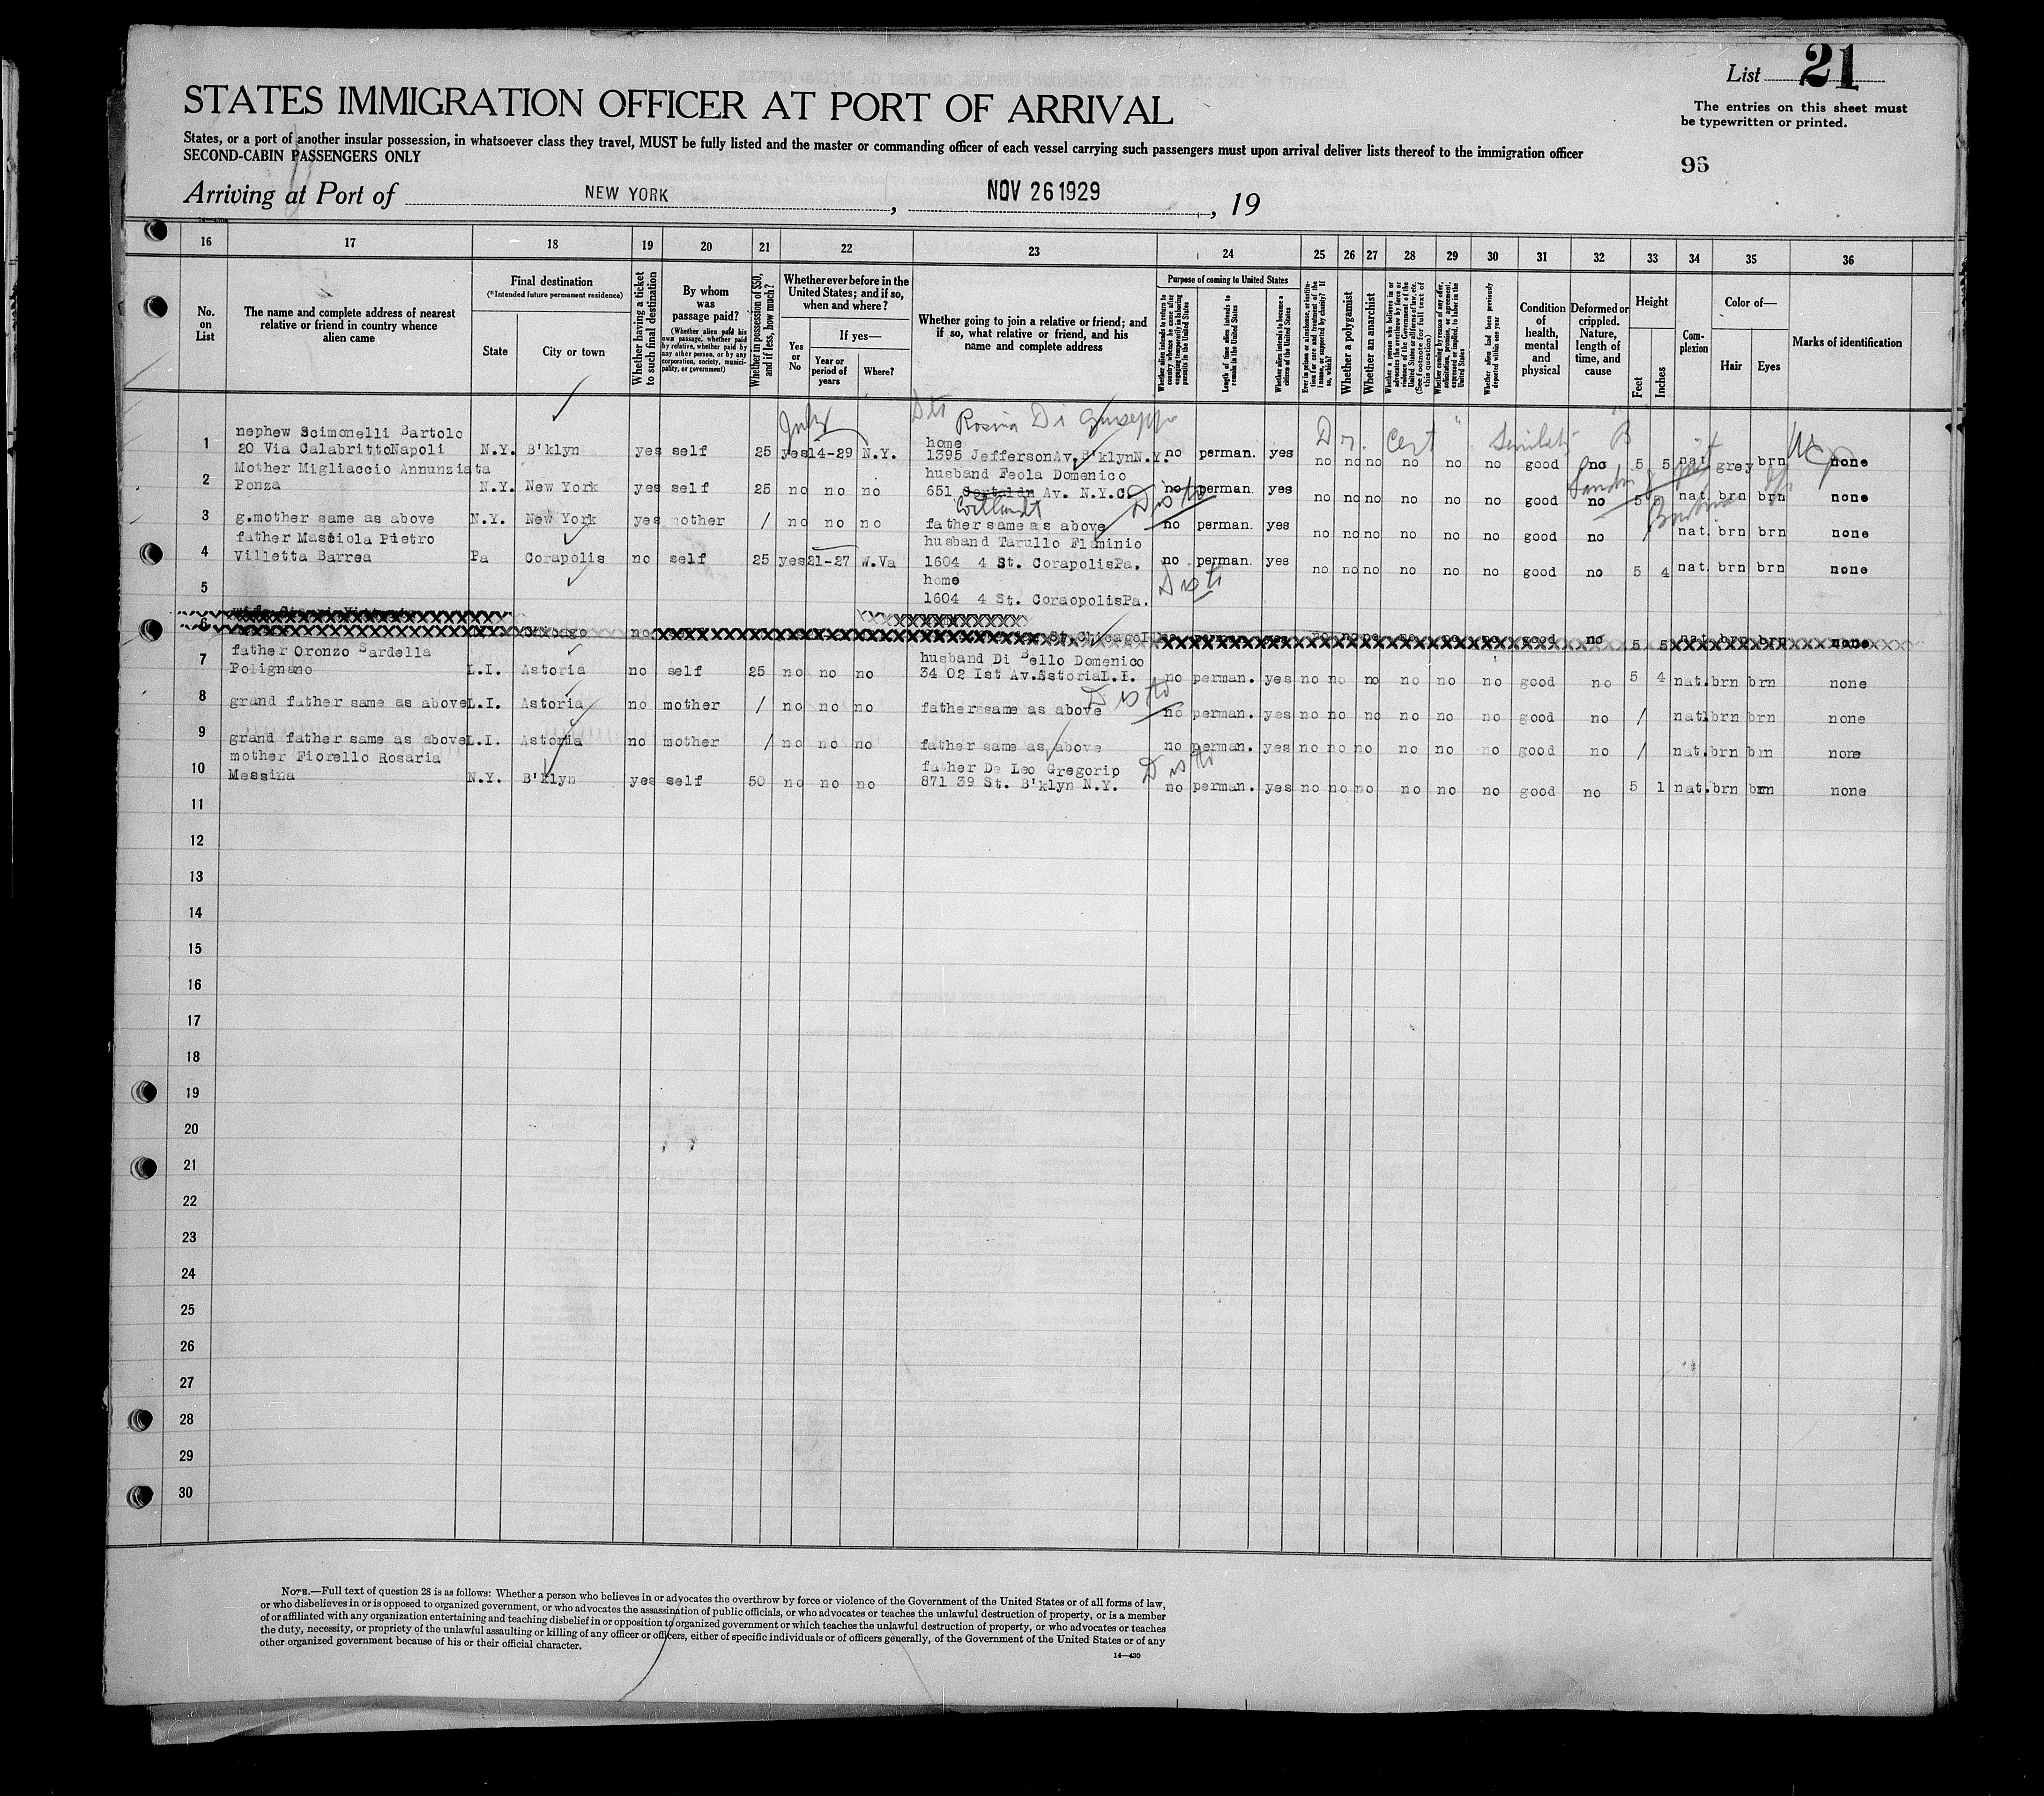 List 21
The entries on this sheet must
be typewritten or printed.
STATES IMMIGRATION OFFICER AT PORT OF ARRIVAL
States, or a port of another insular possession, in whatsoever class they travel, MUST be fully listed and the master or commanding officer of each vessel carrying such passengers must upon arrival deliver lists thereof to the immigration officer
SECOND-CABIN PASSENGERS ONLY
96
Arriving at Port of NEW YORK, NOV 26 1929, 19
16 17 18 19 20 21 22 23 24 25 26 27 28 29 30 31 32 33 34 35 36
No. on List
The name and complete address of nearest relative or friend in country whence alien came
Final destination
(*Intended future permanent residence)
State
City or town
Whether having a ticket to such final destination
By whom was passage paid?
(Whether alien paid his own passage, whether paid by relative, whether paid by any other person, or by any corporation, society, municipality, or government)
Whether in possession of $50, and if less, how much?
Whether ever before in the United States; and if so, when and where?
Yes or No
If yes—
Year or period of years
Where?
Whether going to join a relative or friend; and if so, what relative or friend, and his name and complete address
Purpose of coming to United States
Whether alien intends to return to country whence he came after engaging temporarily in laboring pursuits in the United States
Length of time alien intends to remain in the United States
Whether alien intends to become a citizen of the United States
Ever in prison or almshouse, or institution for care and treatment of the insane, or supported by charity? If so, which?
Whether a polygamist
Whether an anarchist
Whether a person who believes in or advocates the overthrow by force or violence of the Government of the United States or all forms of law, etc. (See footnote for full text of this question)
Whether coming by reason of any offer, solicitation, promise, or agreement, expressed or implied, to labor in the United States
Whether alien had been previously deported within one year
Condition of health, mental and physical
Deformed or crippled. Nature, length of time, and cause
Height
Feet
Inches
Complexion
Color of—
Hair
Eyes
Marks of identification
July
Rosina Di Giuseppe
Dr. Cert Senility B
nephew Scimonelli Bartolo home
1 20 Via CalabrittoNapoli N.Y. B'klyn yes self 25 yes 14-29 N.Y. 1395 JeffersonAv.B'klynN.Y. no perman. yes no no no no no no good no 5 5 nat grey brn none
Mother Migliaccio Annunziata husband Feola Domenico
2 Ponza N.Y. New York yes self 25 no no no 651 Av. N.Y.C. no perman. yes no no no no no no good no 5 nat. brn brn none
Cortlandt
3 g.mother same as above N.Y. New York yes mother / no no no father same as above no perman. yes no no no no no no good no / nat. brn brn none
father Masciola Pietro husband Tarullo Flaminio
4 Villetta Barrea Pa Corapolis no self 25 yes 21-27 W.Va 1604 4 St. CorapolisPa. no perman. yes no no no no no no good no 5 4 nat. brn brn none
5 home
1604 4 St. CoraopolisPa.
6 no St.Chicago yes no no no no no no good no 5 5 nat brn brn none
father Oronzo Sardella husband Di Bello Domenico
7 Polignano L.I. Astoria no self 25 no no no 34 02 Ist Av.AstoriaL.I. no perman. yes no no no no no no good no 5 4 nat. brn brn none
8 grand father same as above L.I. Astoria no mother / no no no father same as above no perman. yes no no no no no no good no / nat brn brn none
9 grand father same as above L.I. Astoria no mother / no no no father same as above no perman. yes no no no no no no good no / nat. brn brn none
mother Fiorello Rosaria father De Leo Gregorip
10 Messina N.Y. B'klyn yes self 50 no no no 871 39 St. B'klyn N.Y. no perman. yes no no no no no no good no 5 1 nat. brn brn none
11
12
13
14
15
16
17
18
19
20
21
22
23
24
25
26
27
28
29
30
NOTE.—Full text of question 28 is as follows: Whether a person who believes in or advocates the overthrow by force or violence of the Government of the United States or of all forms of law,
or who disbelieves in or is opposed to organized government, or who advocates the assassination of public officials, or who advocates or teaches the unlawful destruction of property, or is a member
of or affiliated with any organization entertaining and teaching disbelief in or opposition to organized government or which teaches the unlawful destruction of property, or who advocates or teaches
the duty, necessity, or propriety of the unlawful assaulting or killing of any officer or officers, either of specific individuals or of officers generally, of the Government of the United States or of any
other organized government because of his or their official character.
14—430